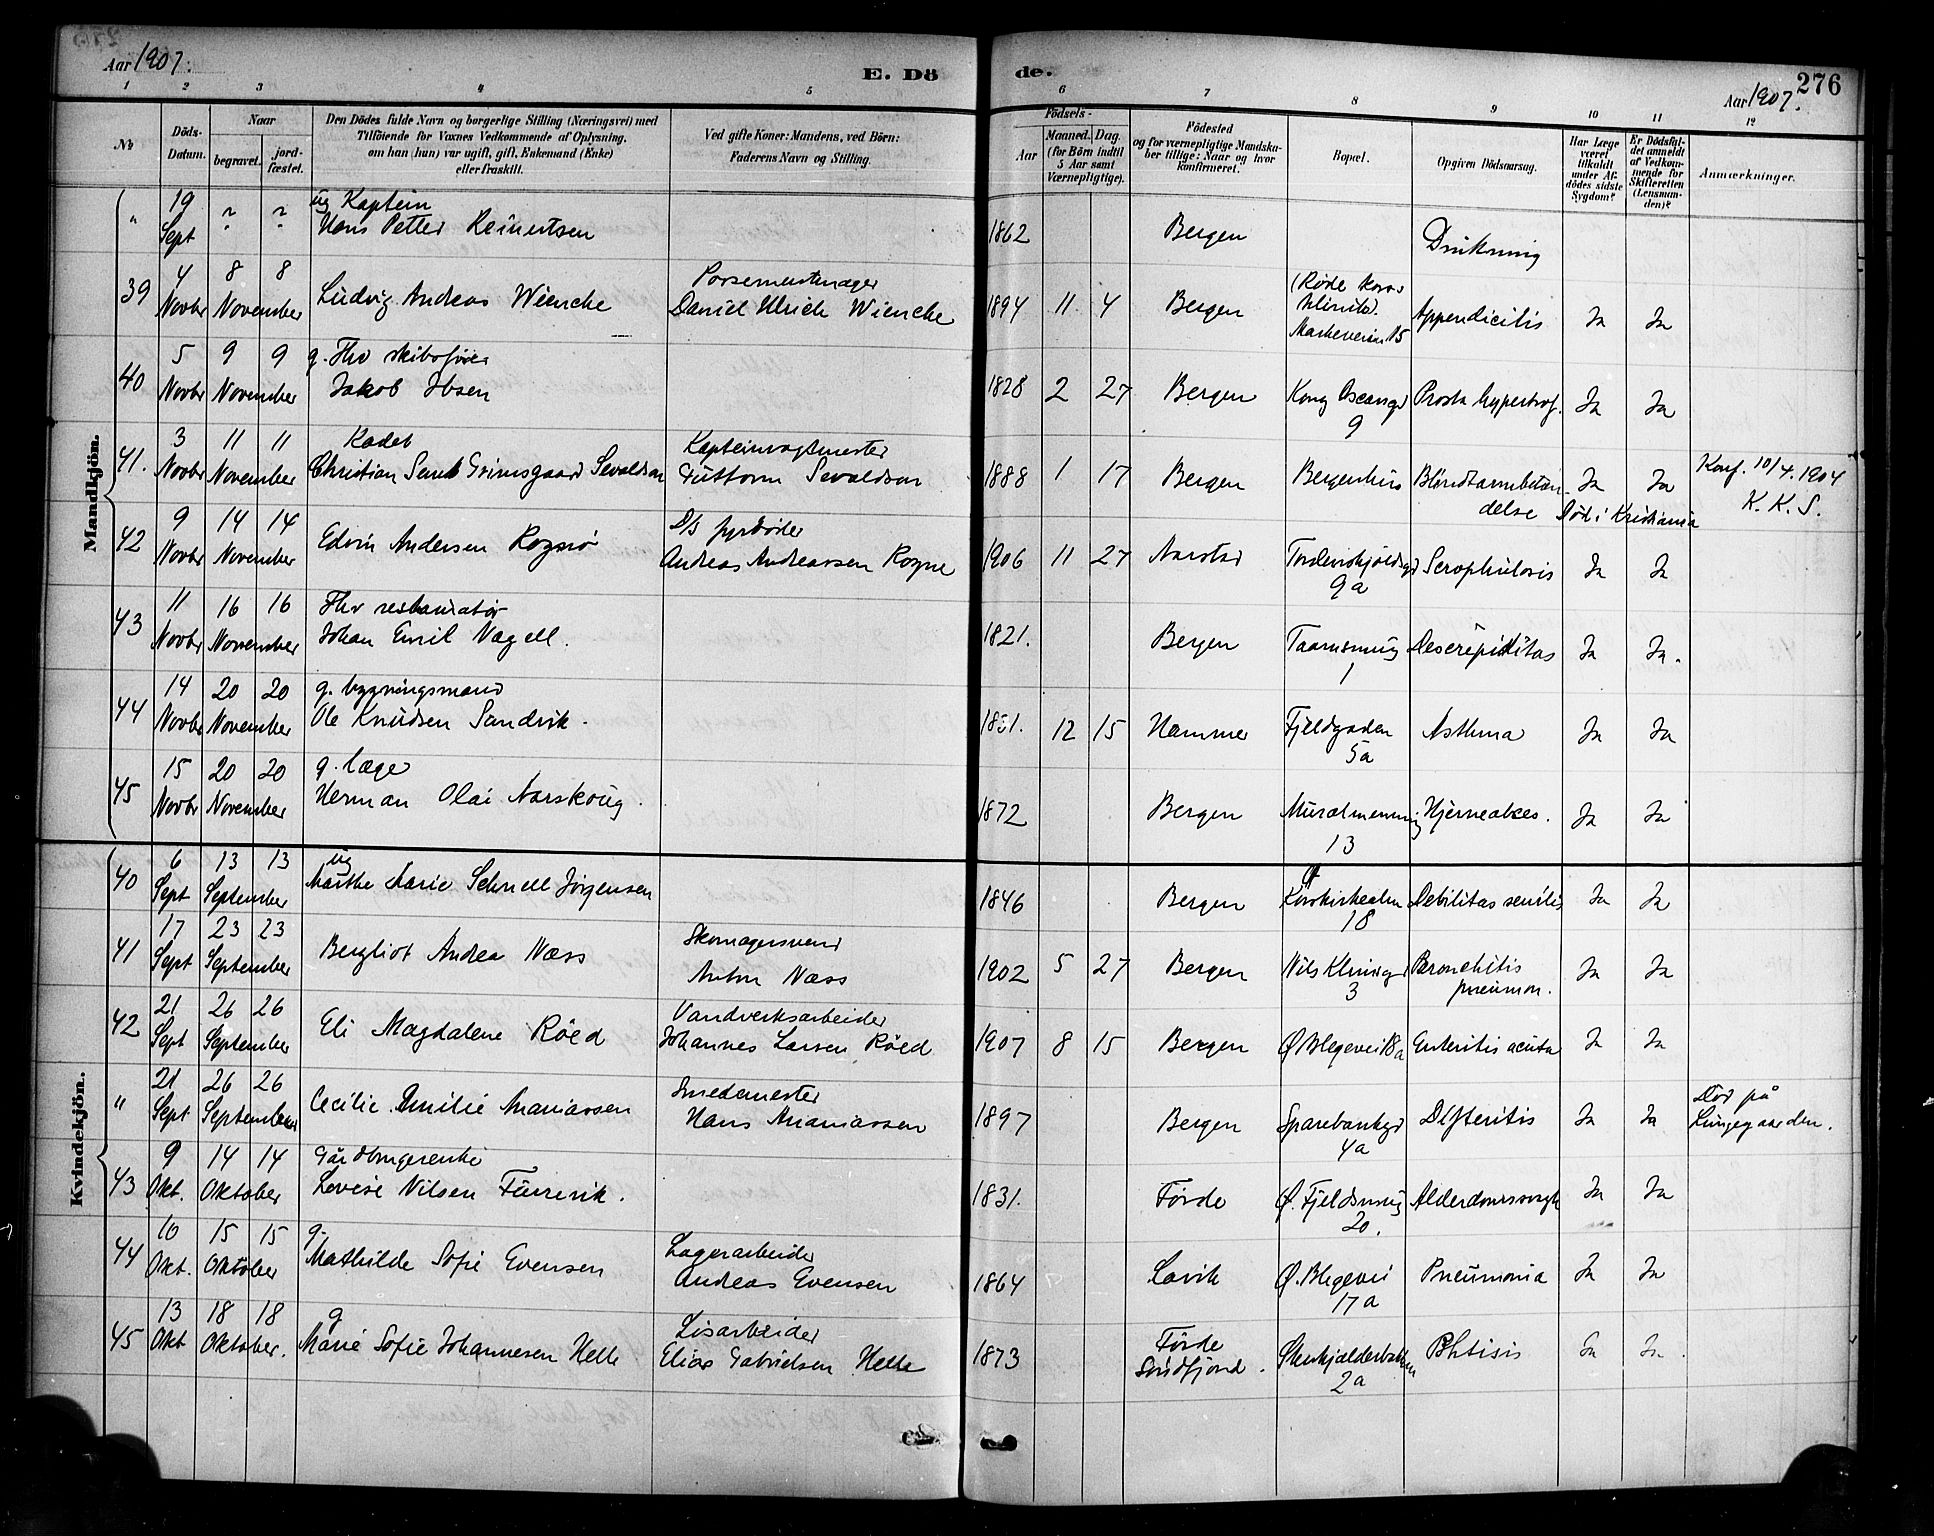 Aar 1907.
E. Dö
de.
Aar 1907.
276
1 2 3 4 5 6 7 8 9 10 11 12
No
Döds-Datum.
Naar
begravet.
jordfæstet.
Den Dödes fulde Navn og borgerlige Stilling (Næringsvei) med
Tilföiende for Voxnes Vedkommende af Oplysning,
om han (hun) var ugift, gift, Enkemand (Enke)
eller fraskilt.
Ved gifte Koner: Mandens, ved Börn:
Faderens Navn og Stilling.
Födsels-
Aar
Maaned. Dag.
(for Börn indtil
5 Aar samt
Værnepligtige).
Födested
og for værnepligtige Mandska-
ber tillige: Naar og hvor
konfirmeret.
Bopæl.
Opgiven Dödsaarsag.
Har Læge
været
tilkaldt
under Af-
dödes sidste
Sygdom?
Er Dödsfal-
det anmeldt
af Vedkom-
mende for
Skifteretten
(Lensman-
den)?
Anmærkninger.
Mandkjön.
" 19 Sept ? ? ug Kaptein
Hans Petter Reinertsen 1862 Bergen Drukning
39 4 Novbr 8 8 November Ludvig Andreas Wiencke
Daniel Ulrich Wiencke 1894 11 4 Bergen (Røde Kors
klinik).
15 Appendicitis Ja Ja
40 5 Novbr 9 9 November g. Fhv skibsfører
Jakob Ibsen 1828 2 27 Bergen Kong Oscarsgd
9 Prosta hypertrof. Ja Ja
41. 3 Novbr 11 11 November Kadet
Christian Grimsgaard Sevaldson
Guttorm Sevaldson 1888 1 17 Bergen Bergenhus Blindtarmbetæn-
delse Ja Ja Konf. 10/4. 1904
Död i Kristiania K. K. S.
42 9 Novbr 14 14 November Edvin Andersen
D/S fyrbøder
Andreas Andreassen Rogne 1906 11 27 Aarstad Tordenskjoldsgd
9a Scrophulosis Ja Ja
43 11 Novbr 16 16 November Fhv restauratør
Johan Emil Nagell. 1821. Bergen 1 Ja Ja.
44 14 Novbr 20 20 November g. bygningsmand
Ole Knudsen Sandvik. 12 15 Hammer Fjeldgaden
5a Asthma Ja Ja
45 15 Novbr 20 20 November g. læge
Herman Olai Aarskoug. 1872 Bergen Muralmenning
13 Hjerneabces. Ja Ja
Kvindekjön.
40 6 Sept 13 13 September ug
Marthe Marie Schnell Jørgensen 1846 Bergen Korskirkealm
18 Debilitas senilis Ja Ja
41 17 Sept 23 23 September Bergliot Andrea Næss
Skomagersvend
Anton Næss 1902 5 27 Bergen Nils Klimsgd
3 Bronchitis
pneumon. Ja Ja
42 21 Sept 26 26 September Eli Magdalene Röed
Vandverksarbeider
Johannes Larsen Röed 1907 8 15 Bergen Ø Blegevei 18a Enteritis acuta Ja Ja
" 21 Sept 26 26 September Cecilie Emilie Ananiassen
Smedemester
Hans Ananiassen 1897 Bergen Sparebankgd
4a Difteritis Ja Ja Död på
Lungegaarden.
43 9 Okt. 14 14 Oktober Gårdbrugerenke
Lovise Nilsen Furevik. 1831. Førde Ø. Fjeldsmug
20. Alderdomssvagh Ja Ja
44 10 Okt. 15 15 Oktober g.
Mathilde Sofie Evensen
Lagerarbeider
Andreas Evensen 1864 Lavik Ø. Blegevei
17a Pneumonia Ja Ja
45 13 Okt 18 18 Oktober. g
Marie Sofie Johannesen Helle
Losarbeider
Elias Gabrielsen Helle 1873 Førde
Söndfjord. 2a Phtisis Ja Ja.